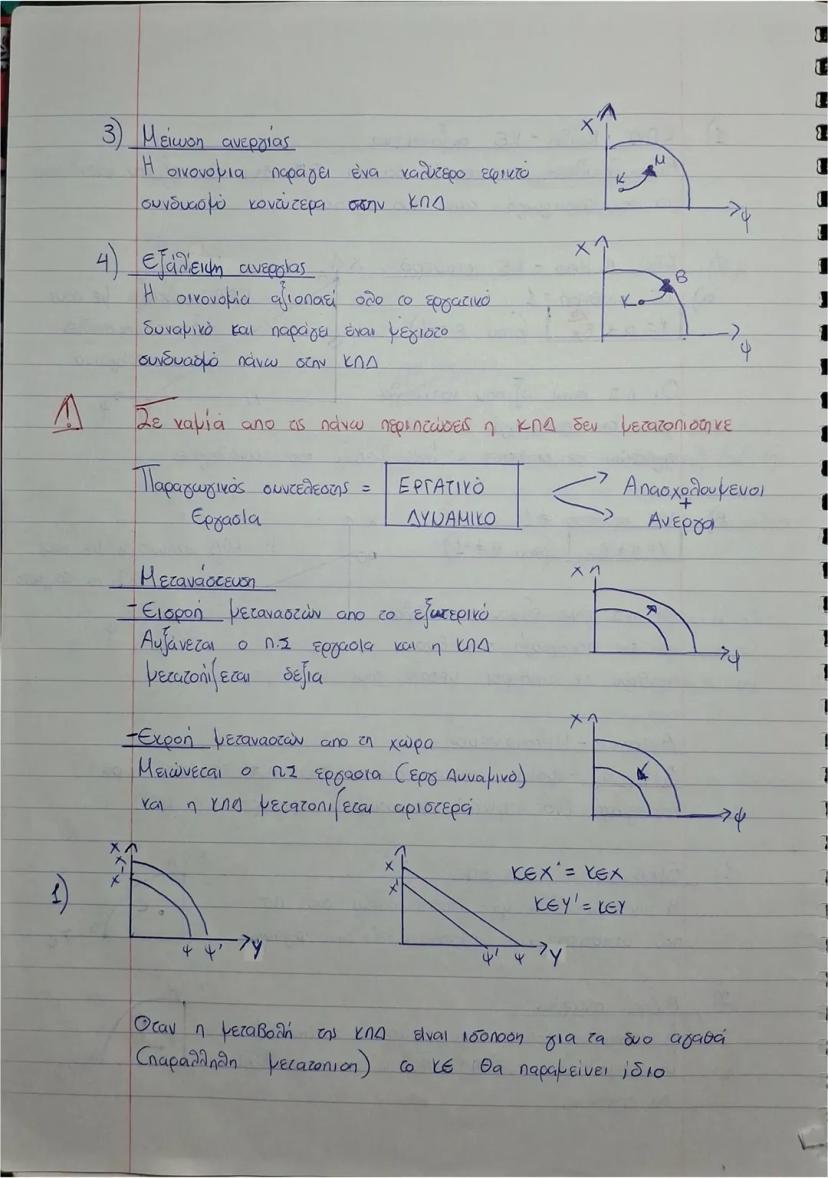 3) Μείωση ανεργίας
Η οικονομια παράγει ένα καλύτερο εφικτό
συνδυασμό κοντύτερα στην ΚΠΔ
X
K
M
ψ
4) Εξάλειψη ανεργίας
Η οικονομία αξιοποιεί ολο το εργατικό
δυναμικό και παράγει έναν μέγιστο
συνδυασμό πάνω στην ΚΠΔ
X
K
B
ψ
! Σε καμία απο τις πάνω περιπτώσεις η ΚΠΔ δεν μετατοπιστηκε
Παραγωγικός συντελεστης = ΕΡΓΑΤΙΚΟ
Εργασία
ΔΥΝΑΜΙΚΟ
Απασχολουμενοι
+
Ανεργοι
Μετανάστευση
- Εισροή μεταναστών απο το εξωτερικό
Αυξάνεται ο π.Σ εργασια και η ΚΠΔ
μετατοπίζεται δεξια
X
ψ
- Εκροή μεταναστών απο τη χώρα
Μειώνεται ο ΠΣ εργασια (εργ Δυναμικό)
και η ΚΠΔ μετατοπιζεται αριστερά
X
ψ
1)
X
X'
X
ψ ψ' Y
X
X'
ψ' ψ Y
ΚΕΧ' = ΚΕΧ
ΚΕΥ' = ΚΕΥ
Οταν η μεταβολή της ΚΠΔ είναι ισόποση για τα δυο αγαθά
(παράλληλη μετατοπιση) το ΚΕ θα παραμείνει ίδιο